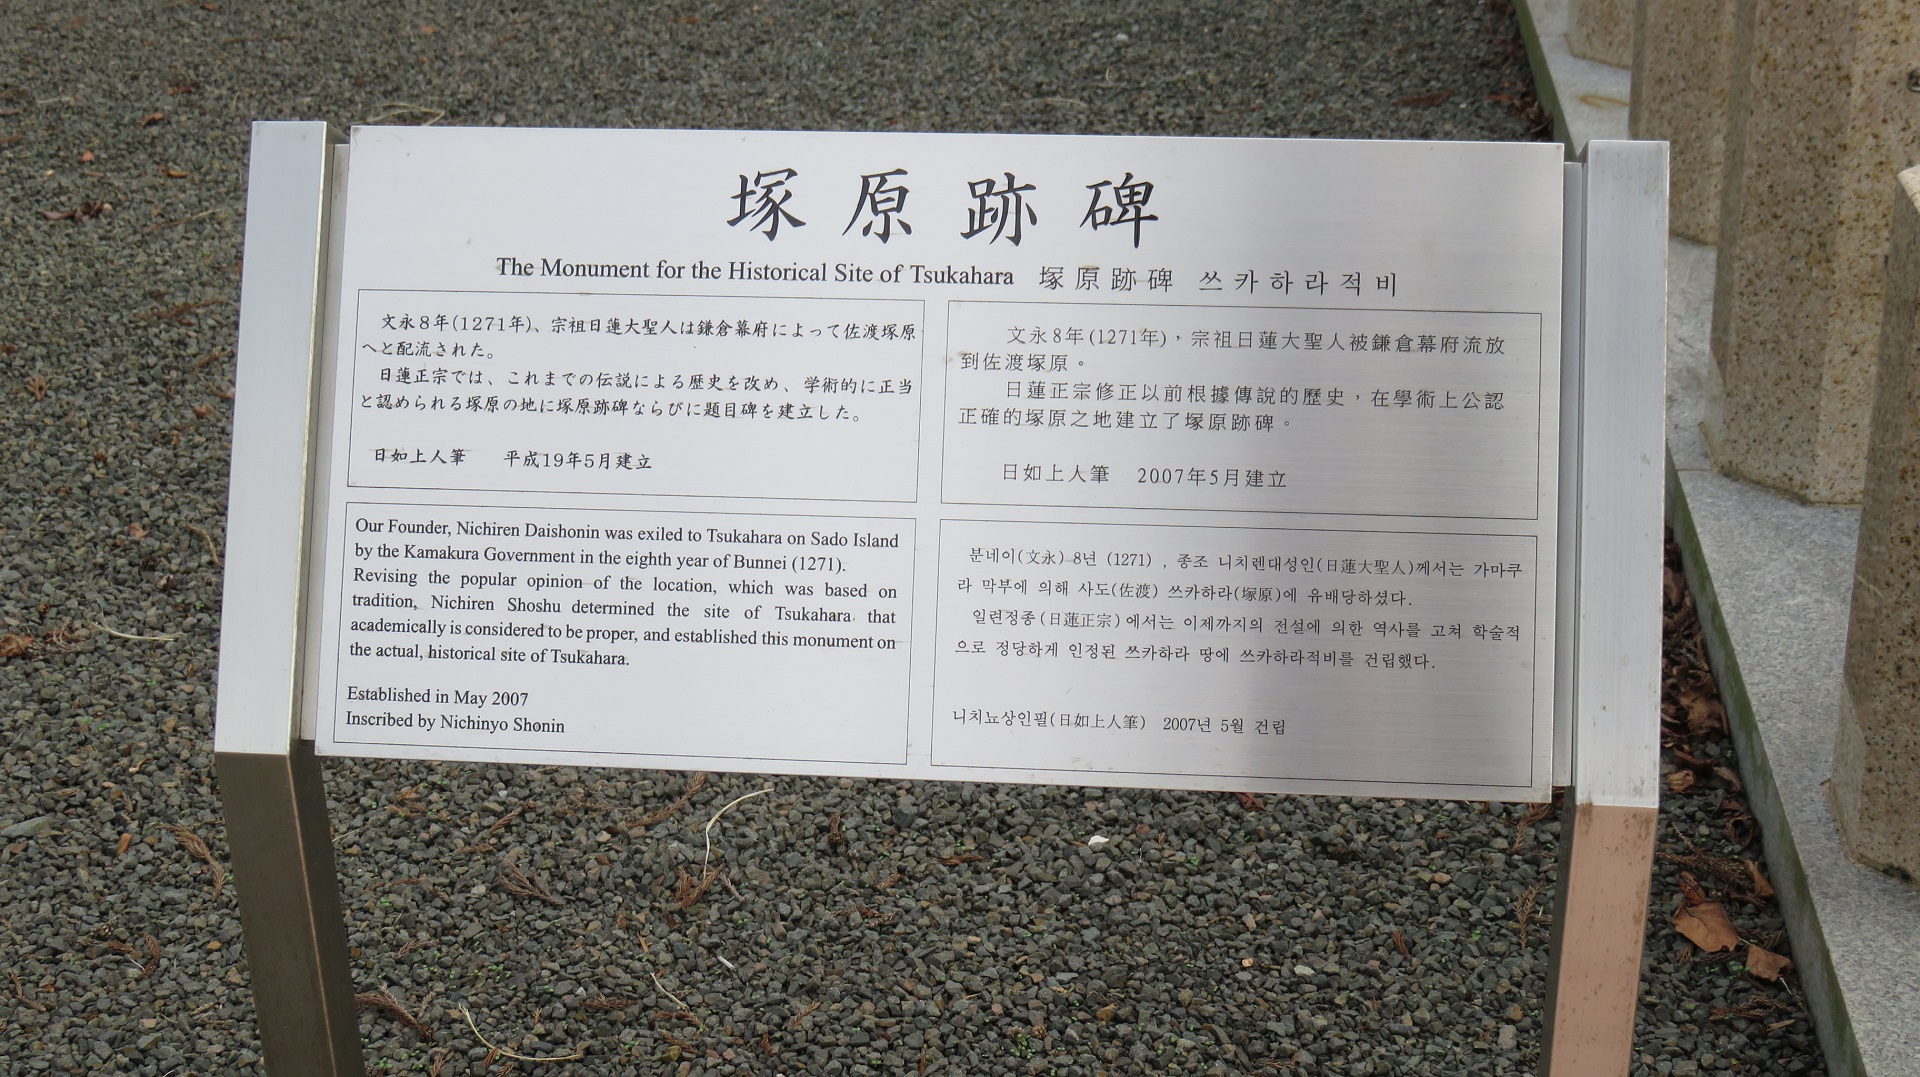 塚原跡碑
The Monument for the Historical Site of Tsukahara 塚原跡碑 쓰카하라적비
文永8年(1271年)、宗祖日蓮大聖人は鎌倉幕府によって佐渡塚原
へと配流された。
日蓮正宗では、これまでの伝説による歴史を改め、学術的に正当
と認められる塚原の地に塚原跡碑ならびに題目碑を建立した。
日如上人筆 平成19年5月建立
文永8年(1271年)，宗祖日蓮大聖人被鎌倉幕府流放
到佐渡塚原。
日蓮正宗修正以前根據傳說的歷史，在學術上公認
正確的塚原之地建立了塚原跡碑。
日如上人筆 2007年5月建立
Our Founder, Nichiren Daishonin was exiled to Tsukahara on Sado Island
by the Kamakura Government in the eighth year of Bunnei (1271).
Revising the popular opinion of the location, which was based on
tradition, Nichiren Shoshu determined the site of Tsukahara that
academically is considered to be proper, and established this monument on
the actual, historical site of Tsukahara.
Established in May 2007
Inscribed by Nichinyo Shonin
분네이(文永) 8년 (1271) , 종조 니치렌대성인(日蓮大聖人)께서는 가마쿠
라 막부에 의해 사도(佐渡) 쓰카하라(塚原)에 유배당하셨다.
일련정종(日蓮正宗)에서는 이제까지의 전설에 의한 역사를 고쳐 학술적
으로 정당하게 인정된 쓰카하라 땅에 쓰카하라적비를 건립했다.
니치뇨상인필(日如上人筆) 2007년 5월 건립